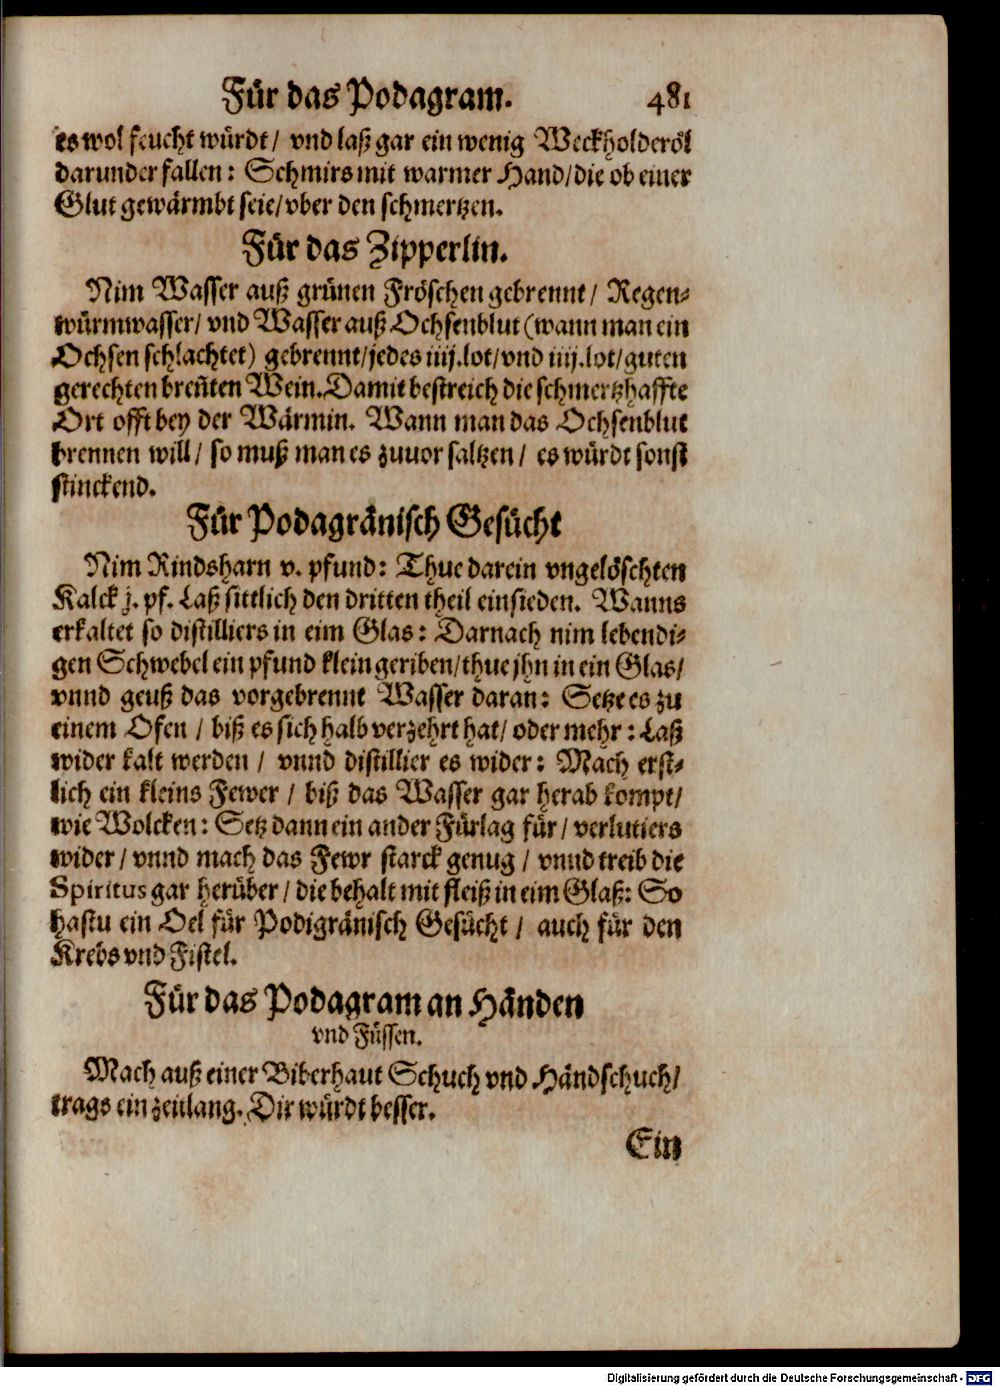 Für das Podagram. 481
es wol feucht würdt / vnd laß gar ein wenig Weckholderöl
darunder fallen: Schmirs mit warmer Hand / die ob einer
Glut gewärmbt seie / vber den schmertzen.
Für das Zipperlin.
Nim Wasser auß grünen Fröschen gebrennt / Regen-
würmwasser / vnd Wasser auß Ochsenblut (wann man ein
Ochsen schlachtet) gebrennt / jedes iiij. lot / vnd iiij. lot / guten
gerechten breñten Wein. Damit bestreich die schmertzhaffte
Ort offt bey der Wärmin. Wann man das Ochsenblut
brennen will / so muß man es zuuor saltzen / es würdt sonst
stinckend.
Für Podagränisch Gesücht
Nim Rindsharn v. pfund: Thue darein vngelöschten
Kalck j. pf. Laß sittlich den dritten theil einsieden. Wanns
erkaltet so distilliers in eim Glas: Darnach nim lebendi-
gen Schwebel ein pfund klein geriben / thue jhn in ein Glas /
vnnd geuß das vorgebrennt Wasser daran: Setze es zu
einem Ofen / biß es sich halb verzehrt hat / oder mehr: Laß
wider kalt werden / vnnd distillier es wider: Mach erst-
lich ein kleins Fewer / biß das Wasser gar herab kompt /
wie Wolcken: Setz dann ein ander Fürlag für / verlutiers
wider / vnnd mach das Fewr starck genug / vnnd treib die
Spiritus gar herüber / die behalt mit fleiß in eim Glaß: So
hastu ein Oel für Podigränisch Gesücht / auch für den
Krebs vnd Fistel.
Für das Podagram an Händen
vnd Füssen.
Mach auß einer Biberhaut Schuch vnd Händschuch /
trags ein zeitlang. Dir würdt besser.
Ein
Digitalisierung gefördert durch die Deutsche Forschungsgemeinschaft - DFG